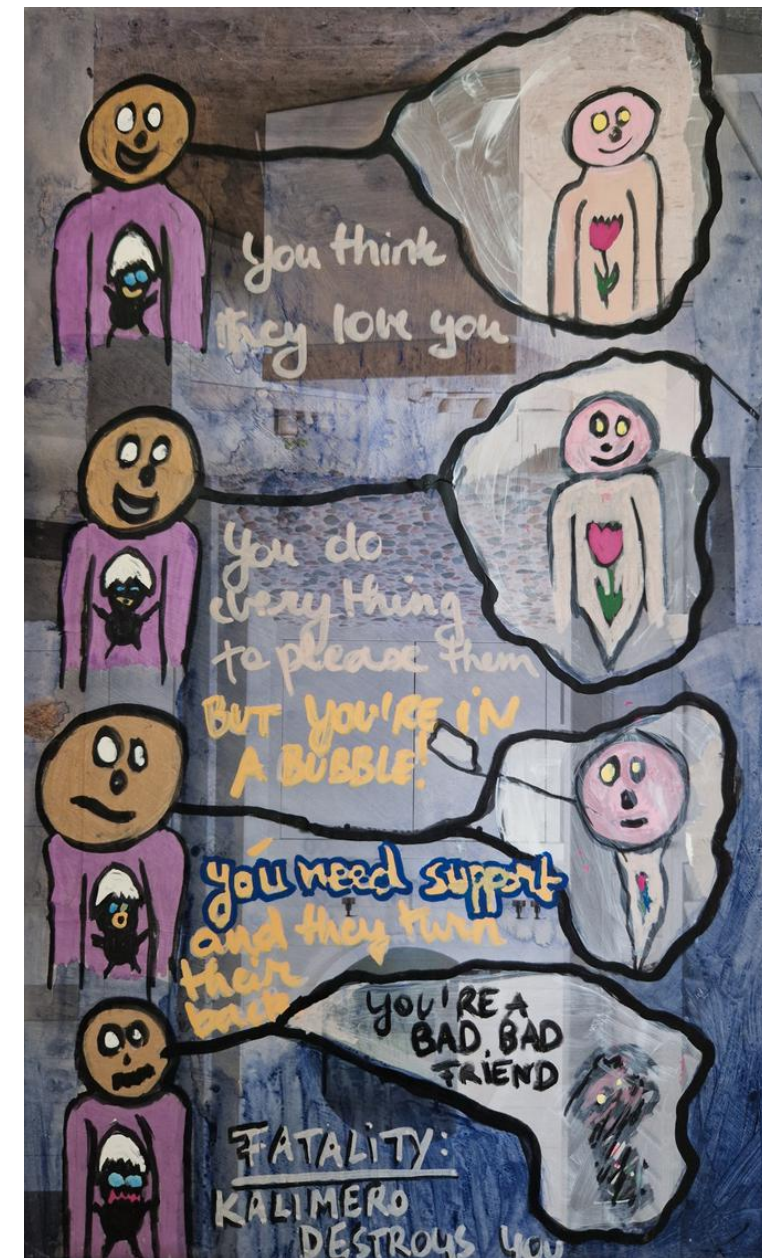 you think
they love you
You do
everything
to please them
BUT YOU'RE iN
A BUBBLE!
you need support
and they turn
their
back
YOU'RE A
BAD, BAD
FRIEND
FATALITY:
KALIMERO
DESTROYS YOU